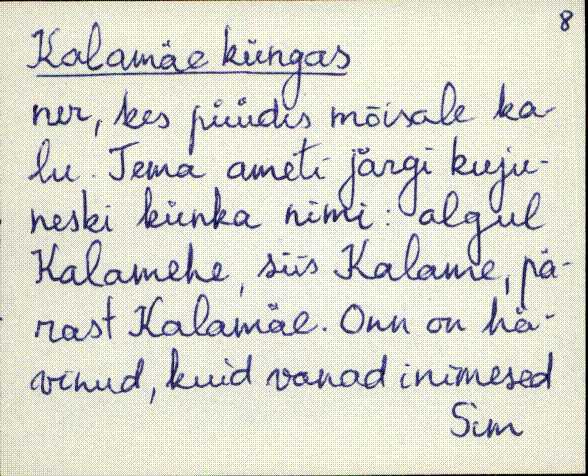 8
Kalamäe küngas
ner, kes püüdis mõisale ka-
lu. Tema ameti järgi kuju-
neski künka nimi: algul
Kalamehe, siis Kalame, pä-
rast Kalamäe. Onn on hä-
vinud, kuid vanad inimesed
Sim